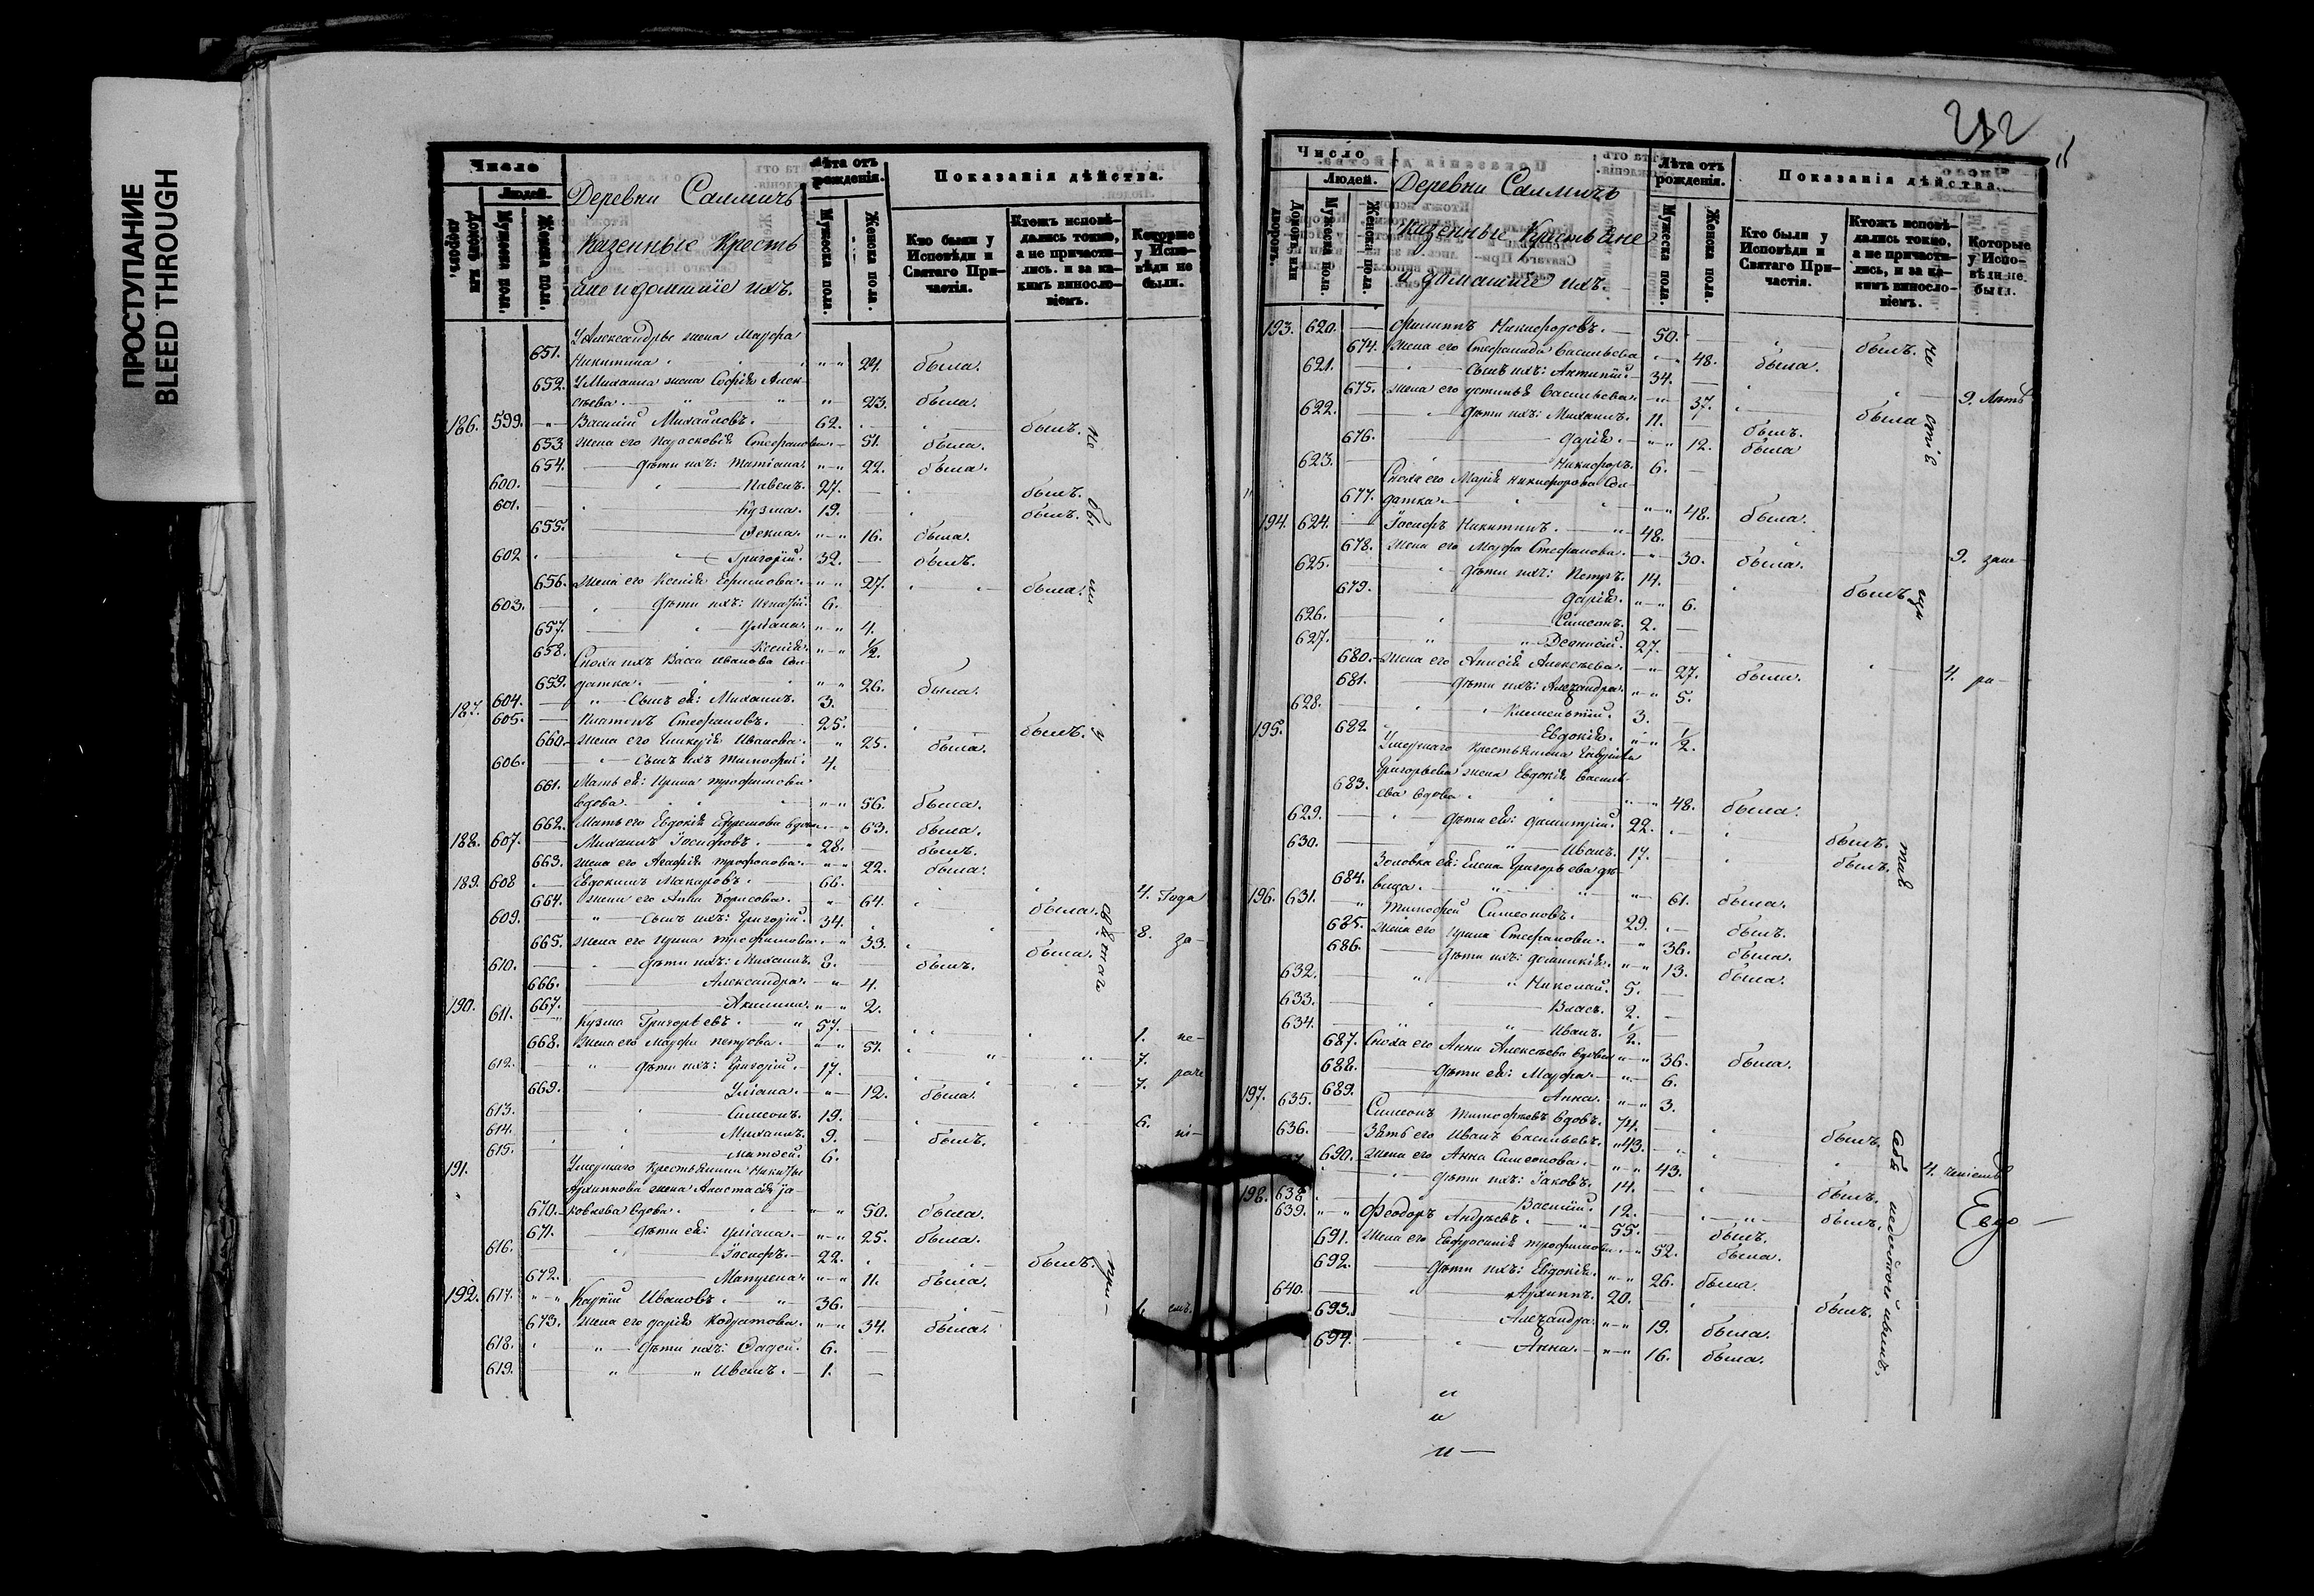 ПРОСТУПАНИЕ
BLEED THROUGH
Число
Людей.
Домовъ или дворовъ.
Мужеска пола.
Женска пола.
Деревни Салмичь
Казенные Кресть
яне и домашніе ихъ.
Лѣта отъ рожденія.
Мужеска пола.
Женска пола.
Показанія дѣйства.
Кто были у Исповѣди и Святаго Причастія.
Ктожъ исповѣдались токмо, а не причастились, и за какимъ винословіемъ.
Которые у Исповѣди не были.
У Александры жена Марѳа
651. Никитина 24. была.
652. У Михаила жена Софія Алек-
сѣева 23. была.
186. 599. Василій Михайловъ. 62. былъ.
653. жена его Парасковія Стефанова 51. была.
654. дѣти ихъ: Татіана. 22. была.
600. Павелъ. 27. былъ.
601. Кузма. 19. былъ.
655. Ѳекла. 16. была.
602. Григорій. 32. былъ.
656. жена его Ксенія Ефимова 27. была.
603. дѣти ихъ: Игнатій. 6.
657. Уліана. 4.
658. Ксенія. 1/2.
Сноха ихъ Васса Иванова Сол-
659. датка. 26. была.
604. Сынъ ея: Михаилъ. 3.
187. 605. Платонъ Стефановъ. 25. былъ.
660. жена его Гликерія Иванова 25. была.
606. Сынъ ихъ Тимофей. 4.
661. Мать ея: Ирина Трофимова
вдова. 56. была.
662. Мать его Евдокія Ефремова вдова 63. была.
188. 607. Михаилъ Іосифовъ. 28. былъ.
663. жена его Агафія Трофимова. 22. была.
189. 608 Евдокимъ Макаровъ. 66. 4. Года
664. жена его Анна Борисова. 64. была.
609. Сынъ ихъ: Григорій. 34. 8. за-
665. жена его Ирина Трофимова. 33. была.
610. дѣти ихъ: Михаилъ. 8. былъ.
666. Александра. 4.
667. Акилина. 2.
190. 611. Кузма Григорьевъ. 57. 1. не-
668. жена его Марѳа Петрова. 51. 7.
612. дѣти ихъ: Григорій. 17. 7. раче
669. Уліана. 12. была.
613. Симеонъ. 19. 6. ні-
614. Михаилъ. 9. былъ.
615. Матѳей. 6.
191. Умершаго Крестьянина Никиты
Архипкова жена Анастасія Ја-
670. ковлева вдова. 50. была.
671. дѣти ея: Уліана. 25. была.
616. Іосифъ. 22. былъ.
672. Матрена. 11. была.
192. 617. Карпій Ивановъ. 36. 1. емъ.
673. жена его Дарія Кодратова. 34. была.
618. дѣти ихъ: Фадей. 6.
619. Иванъ. 1.
Число
Людей.
Домовъ или дворовъ.
Мужеска пола.
Женска пола.
Деревни Салмичь
Казенные Крестьяне
и домашніе ихъ.
Лѣта отъ рожденія.
Мужеска пола.
Женска пола.
Показанія дѣйства.
Кто были у Исповѣди и Святаго Причастія.
Ктожъ исповѣдались токмо, а не причастились, и за какимъ винословіемъ.
Которые у Исповѣди не были.
193. 620. Филиппъ Никифоровъ. 50. былъ.
674. жена его Стефанида Васильева 48. была.
621. Сынъ ихъ: Антипій. 34. 9. Лѣтъ
675. жена его Устинья Васильева. 37. была
622. дѣти ихъ: Михаилъ. 11. былъ.
676. Дарія. 12. была
623. Никифоръ. 6.
Сноха его Марія Никифорова Сол-
677. датка. 48. была.
194. 624. Іосифъ Никитинъ. 48. 9. зане
678. жена его Марѳа Стефанова. 30. была.
625. дѣти ихъ: Петръ. 14. былъ
679. Дарія. 6.
626. Симеонъ. 2.
627. Деонисій. 27. 4. ра-
680. жена его Анисія Алексѣева. 27. была.
681. дѣти ихъ: Алеѯандра. 5.
628. Климентій. 3.
682. Евдокія. 1/2.
195. Умершаго Крестьянина
Григорьева жена Евдокія Василь-
683. ева вдова 48. была.
629. дѣти ея: Димитрій. 22. былъ.
630. Иванъ. 17. былъ.
Золовка ея: Елена Григорьева дѣ-
684. вица. 61. была.
196. 631. Тимофей Симеоновъ. 29. былъ.
685. жена его Ирина Стефанова. 36. была.
686. дѣти ихъ: Домникія. 13. была.
632. Николай. 5.
633. Власъ. 2.
634. Иванъ. 1/2.
687. Сноха его Анна Алексѣева вдова 36. была.
688. дѣти ея: Марѳа. 6.
689. Анна. 3.
197. 635. Симеонъ Тимофеевъ вдовъ. 74. былъ.
636. Зять его Иванъ Васильевъ. 43. 4.
690. жена его Анна Симеонова. 43.
дѣти ихъ: Іаковъ. 14. былъ.
638 Василій. 12. былъ.
198. 639. Феодоръ Андреевъ. 55. былъ.
691. жена его Евфросинія Трофимова 52. была.
692. дѣти ихъ: Евдокія. 26. была.
640. Архиппъ. 20. былъ.
693. Алеѯандра. 19. была.
694. Анна. 16. была.
Евдо-